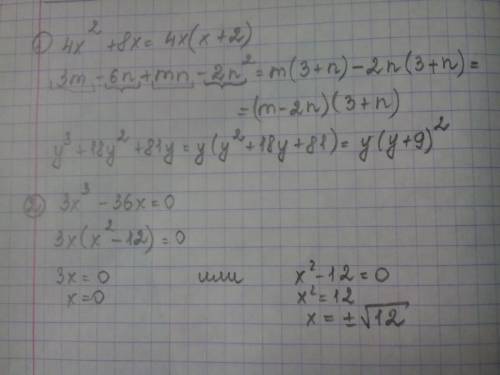 1) 4x² + 8x = 4x(x+2)
3m - 6n + mn - 2n² = m(3+n) - 2n(3+n) =
= (m-2n)(3+n)
y³ + 18y² + 81y = y(y² + 18y + 81) = y(y+9)²
2) 3x³ - 36x = 0
3x(x² - 12) = 0
3x = 0 или x² - 12 = 0
x = 0 x² = 12
x = ±√12